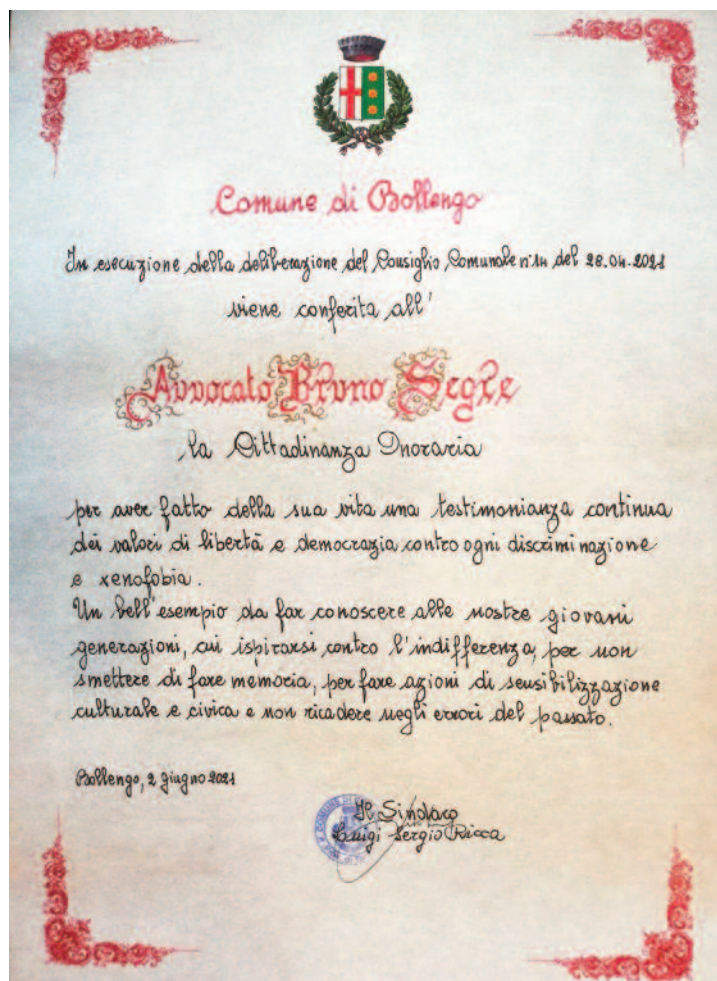 Comune di Bollengo
In esecuzione della deliberazione del Consiglio Comunale n° 14 del 28.04.2021
viene conferita all'
Avvocato Bruno Segre
la Cittadinanza Onoraria
per aver fatto della sua vita una testimonianza continua
dei valori di libertà e democrazia contro ogni discriminazione
e xenofobia.
Un bell'esempio da far conoscere alle nostre giovani
generazioni, cui ispirarsi contro l'indifferenza, per non
smettere di fare memoria, per fare azioni di sensibilizzazione
culturale e civica e non ricadere negli errori del passato.
Bollengo, 2 giugno 2021
Il Sindaco
Luigi Sergio Ricca